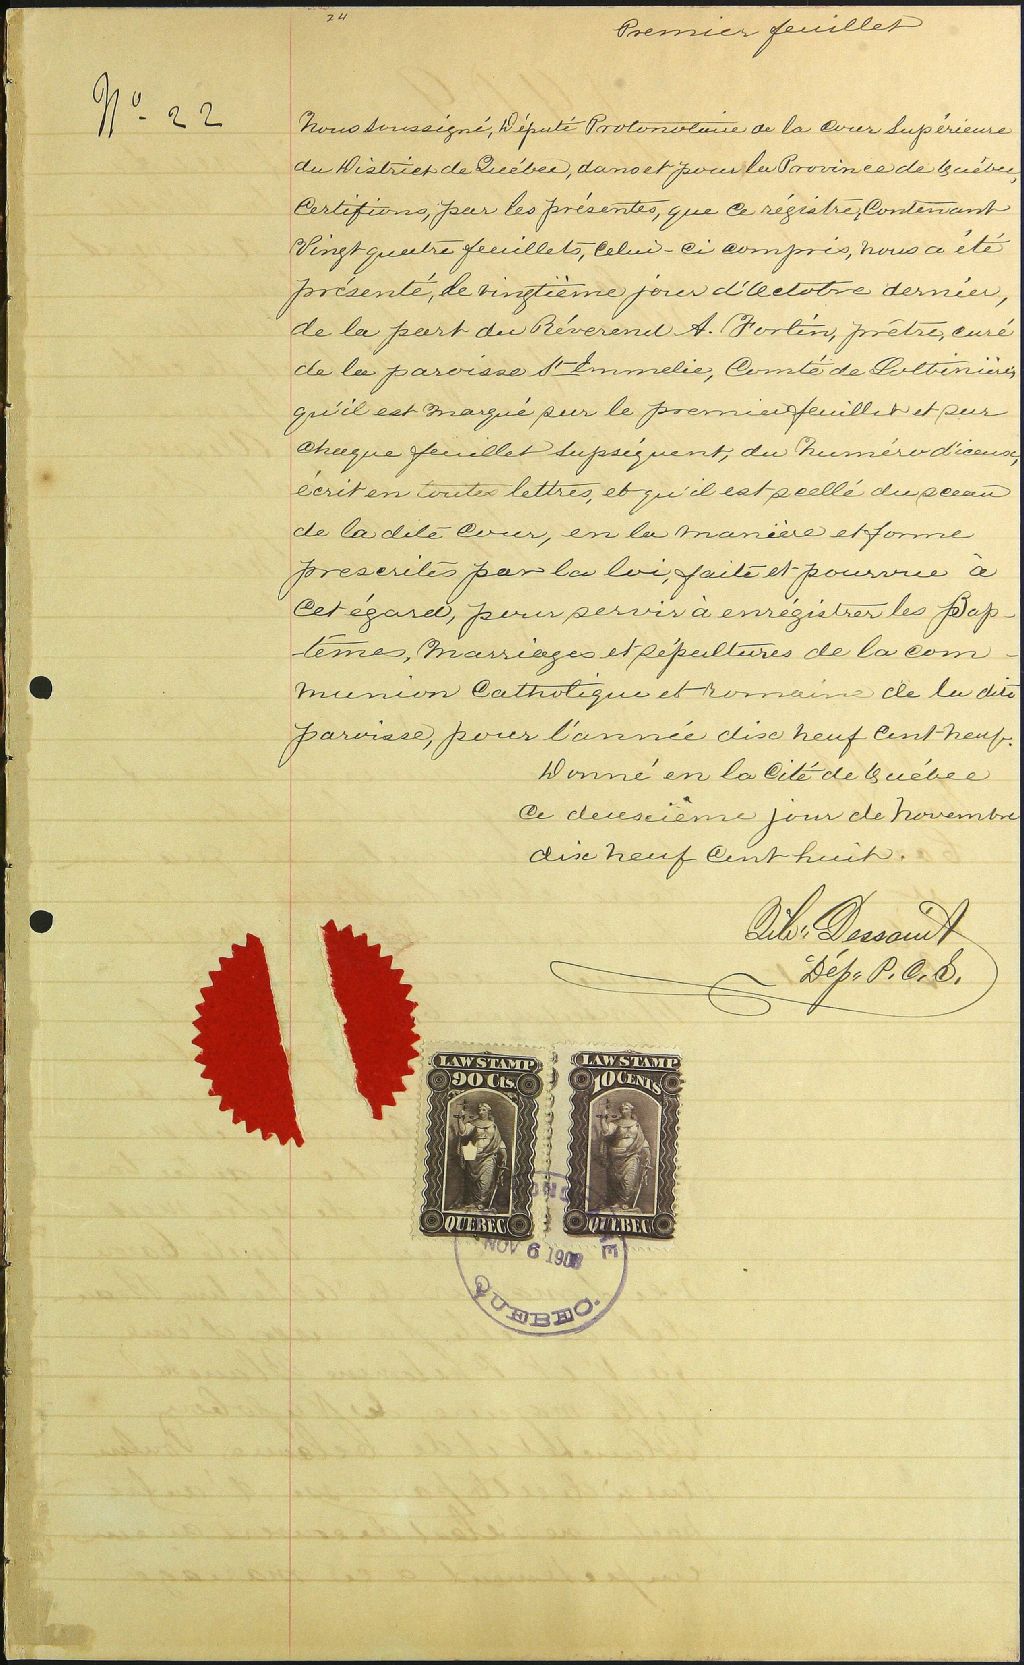 24
Premier feuillet
No. 22
Nous soussigné, Député Protonotaire de la Cour Supérieure
du District de Québec, dans et pour la Province de Québec,
Certifions, par les présentes, que ce régistre, Contenant
Vingt quatre feuillets, celui-ci compris, nous a été
présenté, le vingtième jour d'Octobre dernier,
de la part du Révérend A. Fortin, prêtre, curé
de la paroisse St Emmelie, Comté de Lotbinière,
qu'il est marqué sur le premier feuillet et sur
chaque feuillet supséquent, du numéro d'iceux,
écrit en toutes lettres, et qu'il est scellé du sceau
de la dite Cour, en la manière et forme
prescrites par la loi, faite et pourvue à
Cet égard, pour servir à enrégistrer les Bap-
têmes, Marriages et sépultures de la com-
munion Catholique et romaine de la dite
paroisse, pour l'année dix neuf Cent neuf.
Donné en la Cité de Québec
Ce deuxième jour de Novembre
dix neuf Cent huit.
Dessault
Dép. P. C. S.
LAW STAMP
90 Cts.
QUEBEC
LAW STAMP
10 CENTS
QUEBEC
NOV 6 1908
QUEBEC.